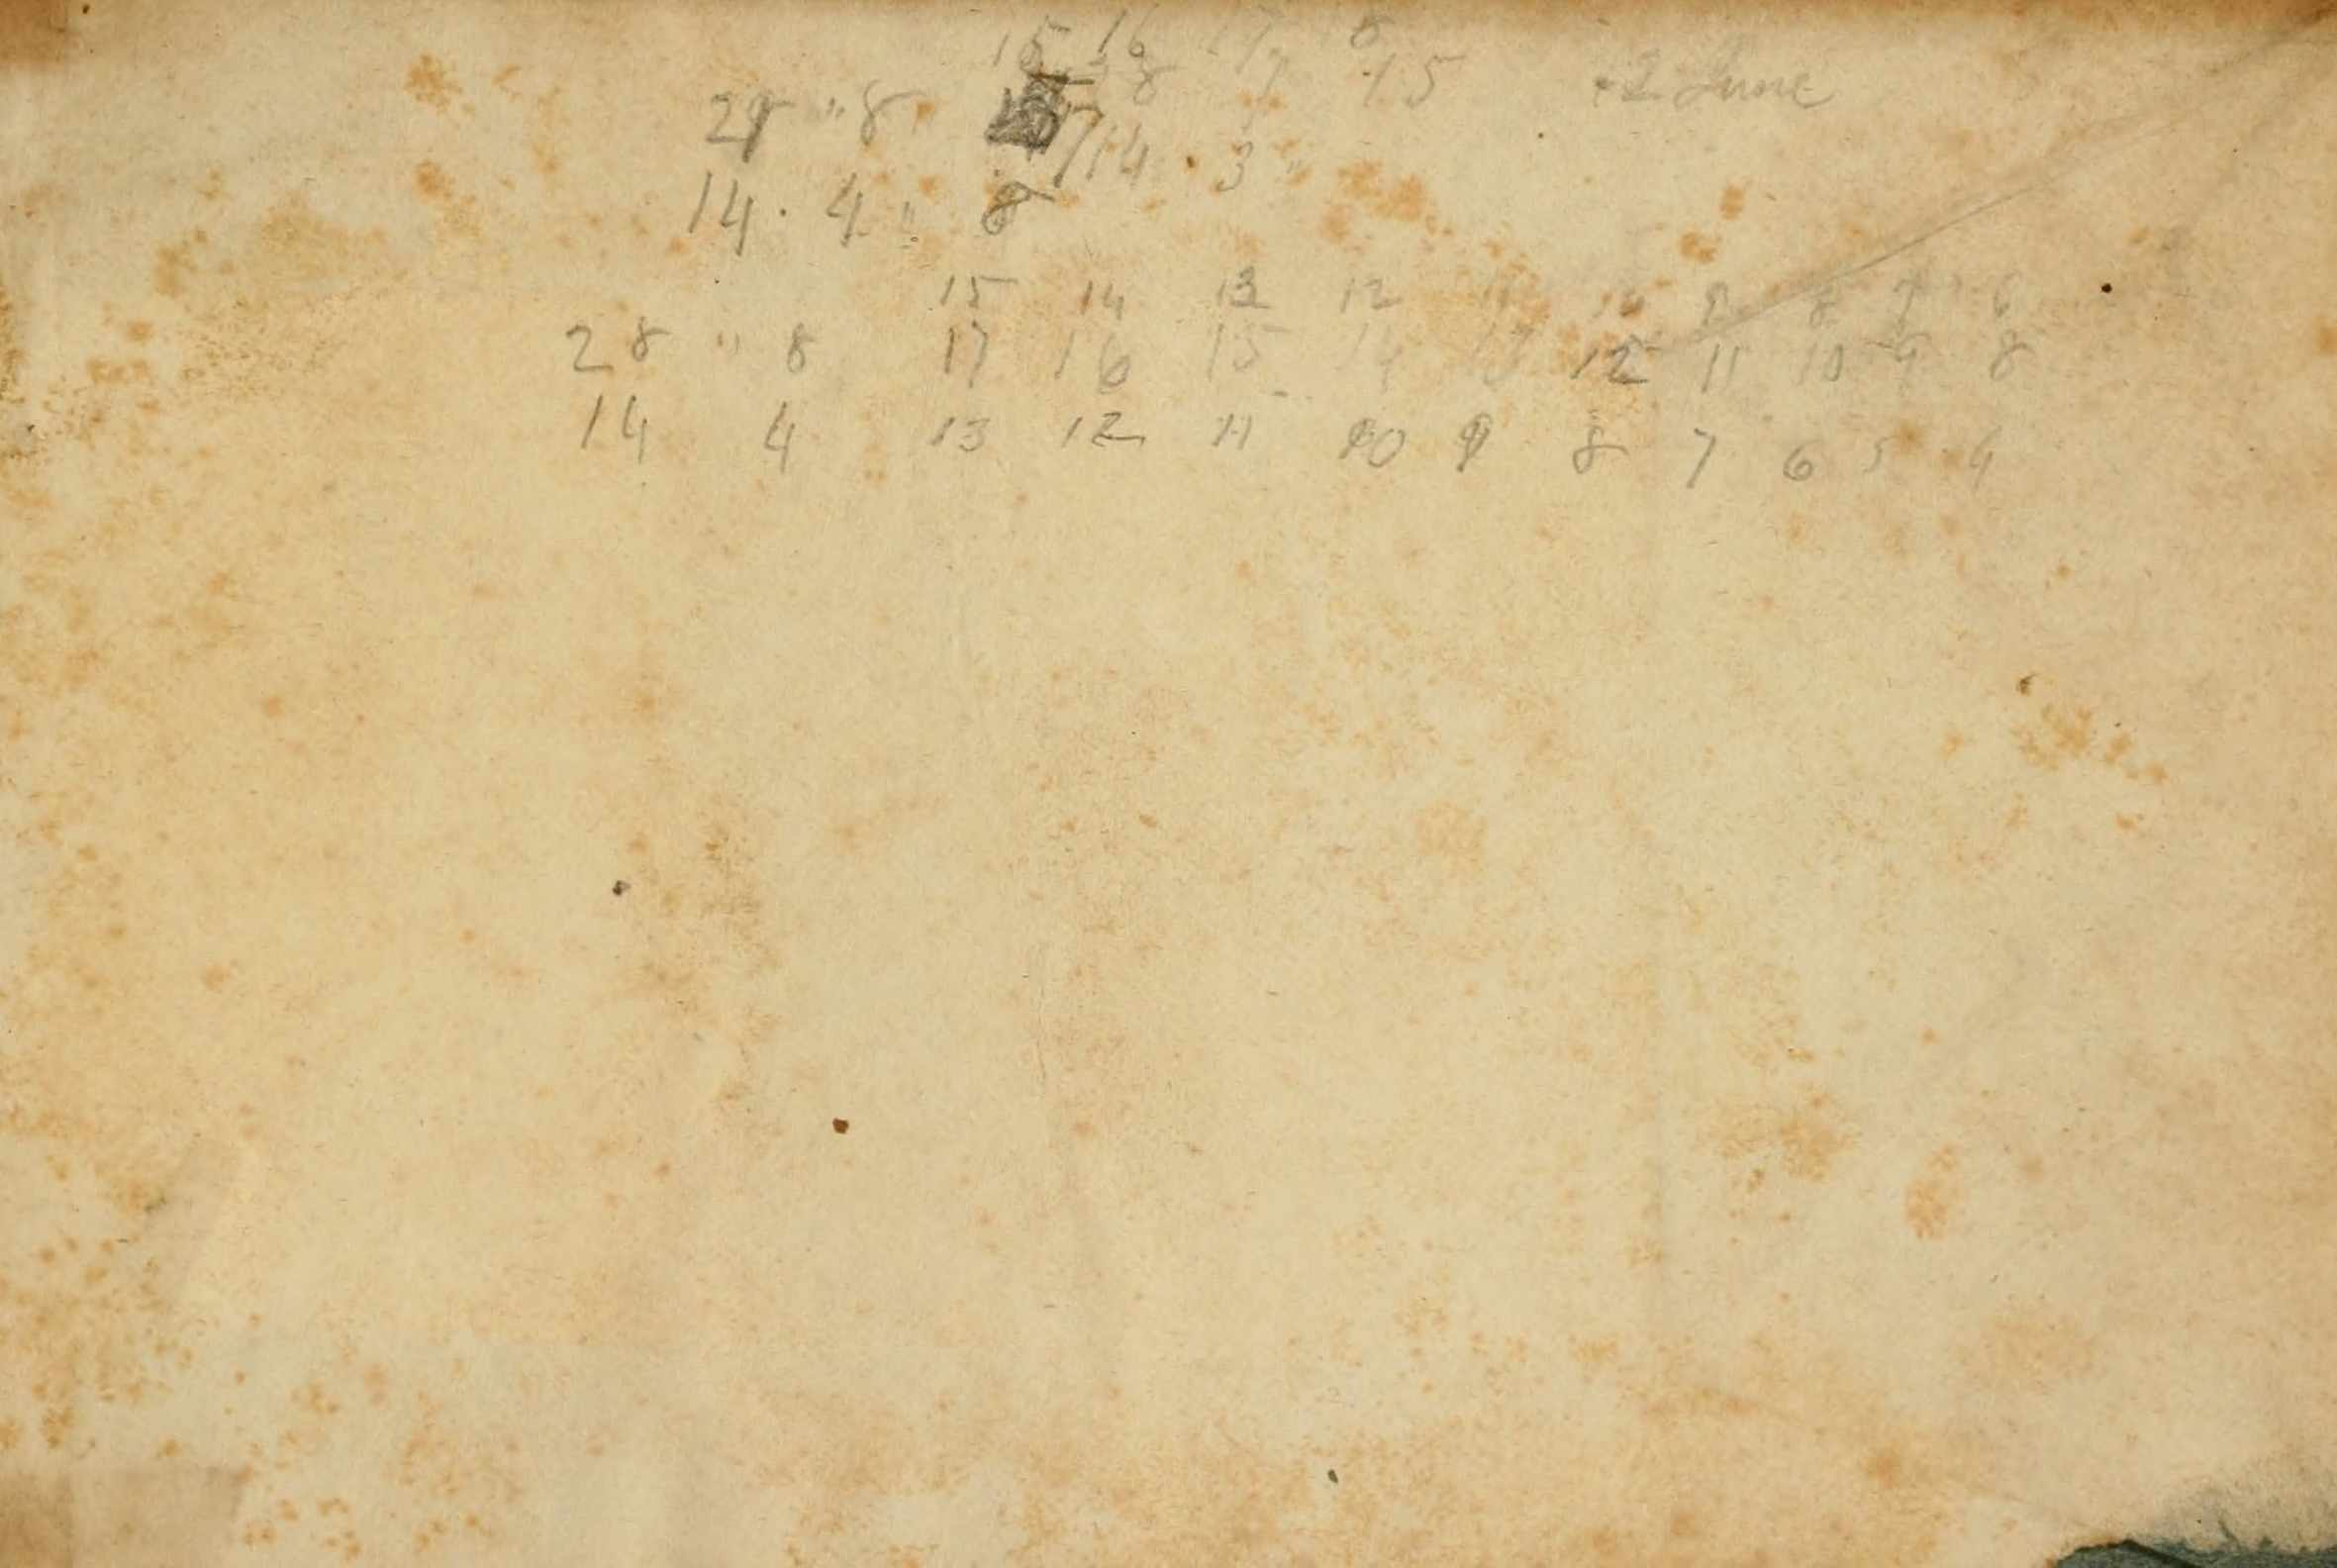 15 16 17 18
8 7 15 2 June
29 " 8 17 14 . 3 "
14 . 4 " 8
15 14 13 12 11 10 9 8 7 6
28 " 8 17 16 15 14 13 12 11 10 9 8
14 4 13 12 11 10 9 8 7 6 5 4